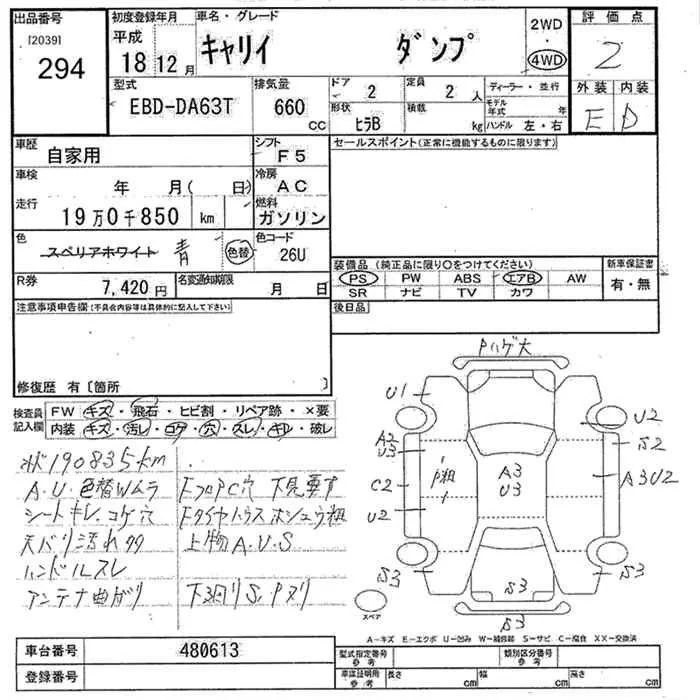 出品番号
[2039]
294
初度登録年月
平成
18 12 月
車名・グレード
キャリイ ダンプ
2WD
4WD
評価点
2
外装 内装
E D
型式
EBD-DA63T
排気量
660
CC
ドア 2
定員 2 人
形状 ヒラB
積載 kg
ディーラー・並行
モデル年式 年
ハンドル 左・右
車歴
自家用
シフト
F5
車検
年 月( 日)
冷房
AC
走行
19万0千850 km
燃料
ガソリン
色
スペリアホワイト 青 色替
色コード
26U
R券
7,420円
名変通知期限
月 日
セールスポイント(正常に機能するものに限ります)
装備品 (純正品に限り○をつけてください)
PS PW ABS エアB AW
SR ナビ TV カワ
新車保証書
有・無
後日品
注意事項申告欄(不具合内容等は具体的に記入して下さい)
修復歴 有〔箇所 〕
検査員記入欄
FW キズ・飛石・ヒビ割・リペア跡・×要
内装 キズ・汚レ・コゲ・穴・スレ・キレ・破レ
状190835km
A.U.色替Wムラ
シートキレ.コゲ穴
天バリ汚れタタ
ハンドルスレ
アンテナ曲ガリ
FフロアC穴 下見要す
Fタイヤハウスホシュウ粗
上物A.U.S
下廻りS.Pヌリ
Pハゲ大
U1
U2
A2
U3
S2
P粗
A3
U3
C2
A3U2
U2
S3
S3
S3
S3
スペア
A－キズ E－エクボ U－凹み W－補修跡 S－サビ C－腐食 XX－交換済
車台番号
480613
登録番号
型式指定番号
参考
類別区分番号
参考
車庫証明用
参考
長さ cm
幅 cm
高さ cm